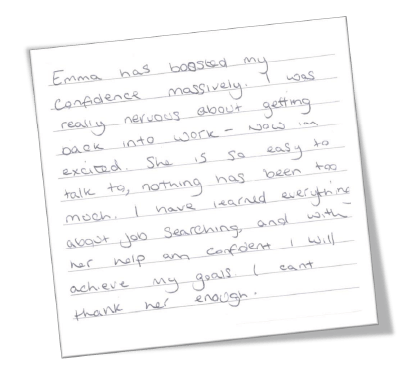 Emma has boosted my
confidence massively. I was
really nervous about getting
back into work - now im
excited. She is so easy to
talk to, nothing has been too
much. I have learned everything
about job searching, and with
her help am confident I will
achieve my goals I cant
thank her enough.